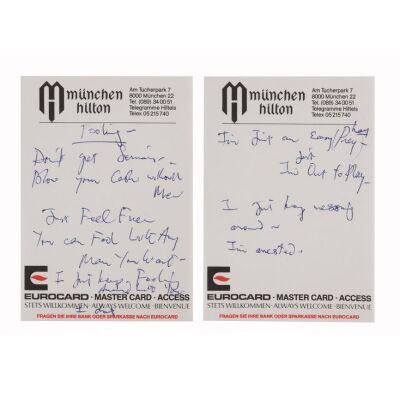 münchen
hilton
Am Tucherpark 7
8000 München 22
Tel. (089) 34 00 51
Telegramme Hiltels
Telex 05 215 740
Fooling –
Don't get Serious –
Blow your Cash without
Me
Just Feel Free
You can Fool
Man You Want –
I Just keep Fooling
EUROCARD · MASTER CARD · ACCESS
STETS WILLKOMMEN · ALWAYS WELCOME · BIENVENUE
FRAGEN SIE IHRE BANK ODER SPARKASSE NACH EUROCARD
münchen
hilton
Am Tucherpark 7
8000 München 22
Tel. (089) 34 00 51
Telegramme Hiltels
Telex 05 215 740
I'm Just an Easy Prey –
Just
I'm Out to Play –
I Just keep messing
around –
I'm arrested.
EUROCARD · MASTER CARD · ACCESS
STETS WILLKOMMEN · ALWAYS WELCOME · BIENVENUE
FRAGEN SIE IHRE BANK ODER SPARKASSE NACH EUROCARD